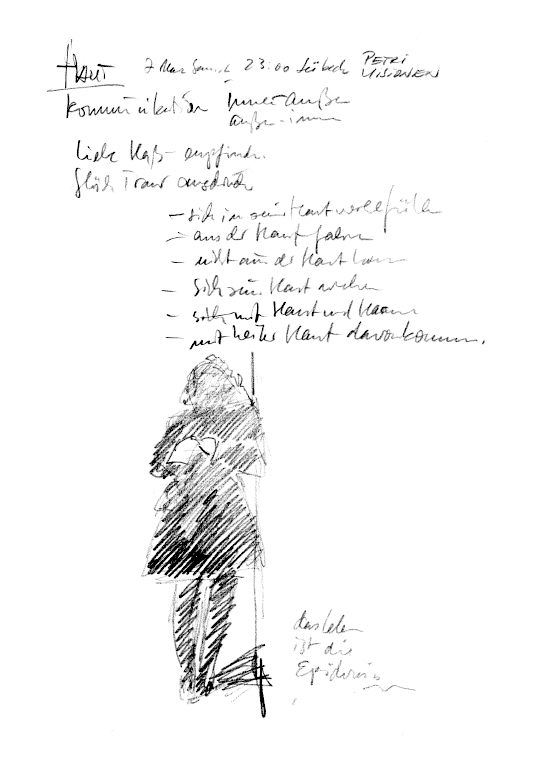 Haut 7 Mai 23:00 Lübeck PETRI VISIONEN
Kommunikation Innen-Außen
außen-innen
Liebe Haß- empfinden.
Glück Trauer ausdrücken
- sich in seiner Haut wohlfühlen
- aus der Haut fahren
- nicht aus der Haut können
- sich seiner Haut wehren
- sich mit Haut und Haaren
- mit heiler Haut davonkommen.
das Leben
ist die
Epidermis